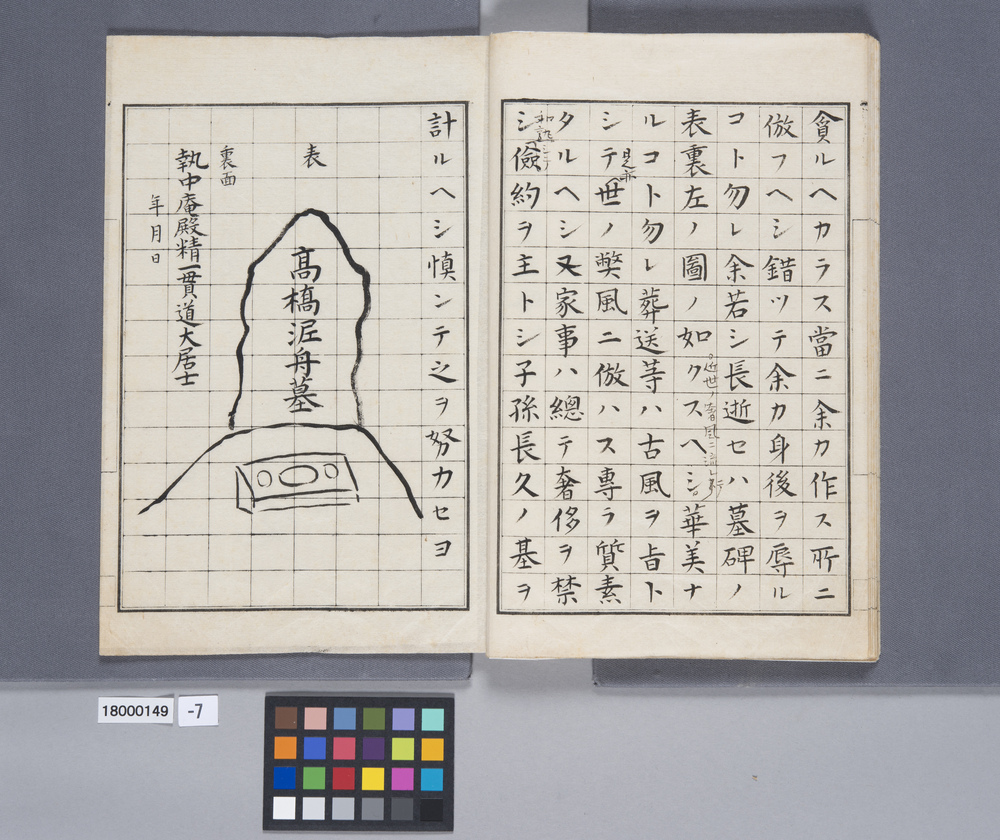 貪ルヘカラス當ニ余カ作ス所ニ
倣フヘシ錯ツテ余カ身後ヲ辱ル
コト勿レ余若シ長逝セハ墓碑ノ
表裏左ノ圖ノ如クスヘシ華美ナ
近世ノ奢風ニ流レ
ルコト勿レ葬送等ハ古風ヲ旨ト
是亦
シテ世ノ弊風ニ倣ハス專ラ質素
タルヘシ又家事ハ總テ奢侈ヲ禁
シ儉約ヲ主トシ子孫長久ノ基ヲ
計ルヘシ慎ンテ之ヲ努力セヨ
表
髙橋泥舟墓
裏面
執中庵殿精一貫道大居士
年月日
18000149
-7